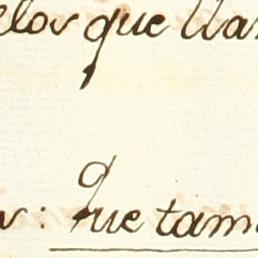 elos que lla
: Que tam